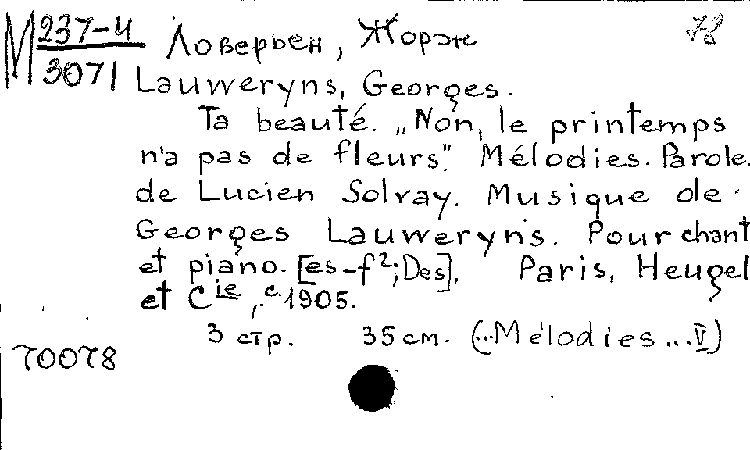 М 237-4 Ловерьен, Жорж 78
3071 Lauweryns, Georges.
Ta beauté. „Non, le printemps
n'a pas de fleurs". Mélodies. Parole.
de Lucien Solvay. Musique de
Georges Lauweryns. Pour chant
et piano. [es-f²; Des]. Paris, Heugel
et Cie, c 1905.
3 стр. 35 см. (...Mélodies...V)
70078